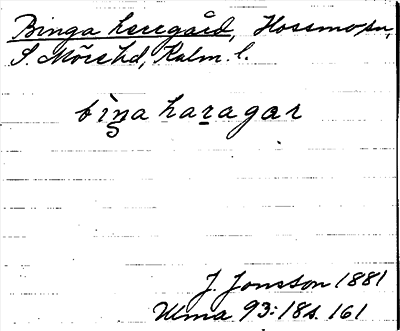 Binga herrgård, Hossmo sn,
S. Möre hd, Kalm. l.
bìŋa haragar
J. Jonsson 1881
Ulma 93:18 s. 161